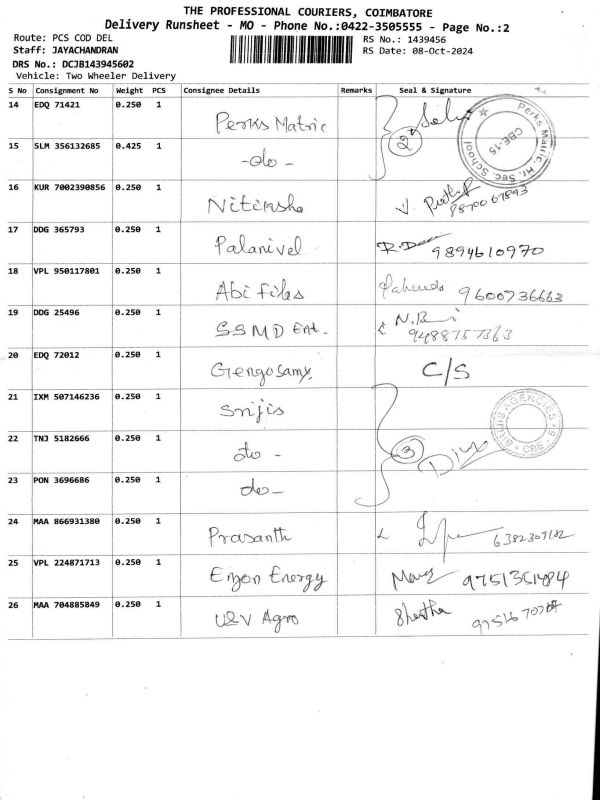 THE PROFESSIONAL COURIERS, COIMBATORE
Delivery Runsheet - MO - Phone No.:0422-3505555 - Page No.:2
Route: PCS COD DEL
RS No.: 1439456
Staff: JAYACHANDRAN
RS Date: 08-Oct-2024
DRS No.: DCJB143945602
Vehicle: Two Wheeler Delivery
S No Consignment No Weight PCS Consignee Details Remarks Seal & Signature
14 EDQ 71421 0.250 1 Perks Matric
Perks Matric. Hr. Sec. School CBE-15
2
15 SLM 356132685 0.425 1 -do-
16 KUR 7002390856 0.250 1 Nitiksha
17 DDG 365793 0.250 1 Palanivel 9894610970
18 VPL 950117801 0.250 1 Abi Files 9600736663
19 DDG 25496 0.250 1 SSMD Ent. 9488757363
20 EDQ 72012 0.250 1 Gengosamy. C/S
21 IXM 507146236 0.250 1 Srijis
SRIJIS AGENCIES CBE
22 TNJ 5182666 0.250 1 do -
3
23 PON 3696686 0.250 1 do-
24 MAA 866931380 0.250 1 Prasanth
25 VPL 224871713 0.250 1 Enzon Energy 9751351484
26 MAA 704885849 0.250 1 U&V Agro